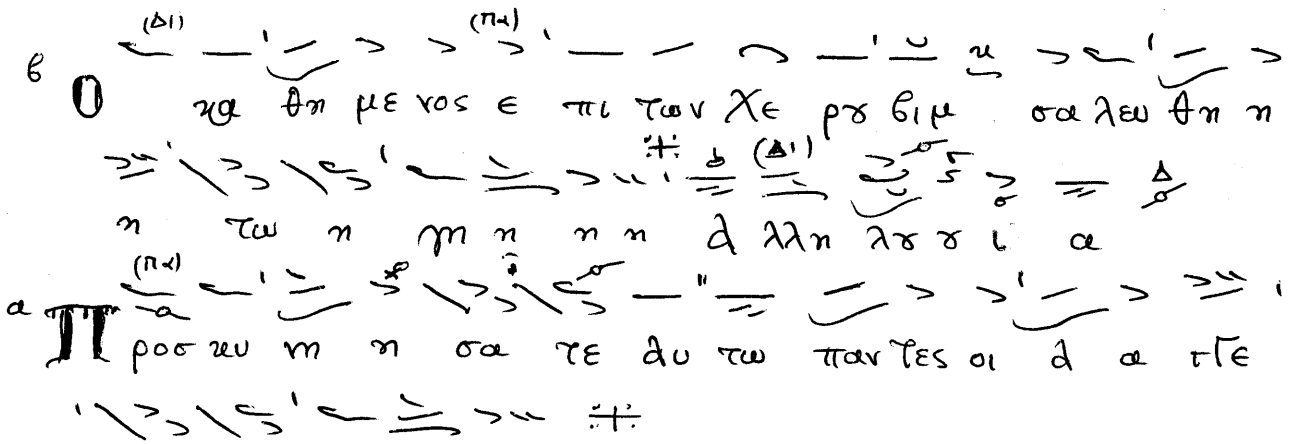 (Δι) (Πα)
β Ο κα θη με νος ε πι των Χε ρȣ βιμ σα λευ θη η
(Δι)
η τω η γη η η η α λλη λȣ ȣ ι α
(Πα)
α Προσ κυ νη η σα τε αυ τω παν τες οι α α γγε